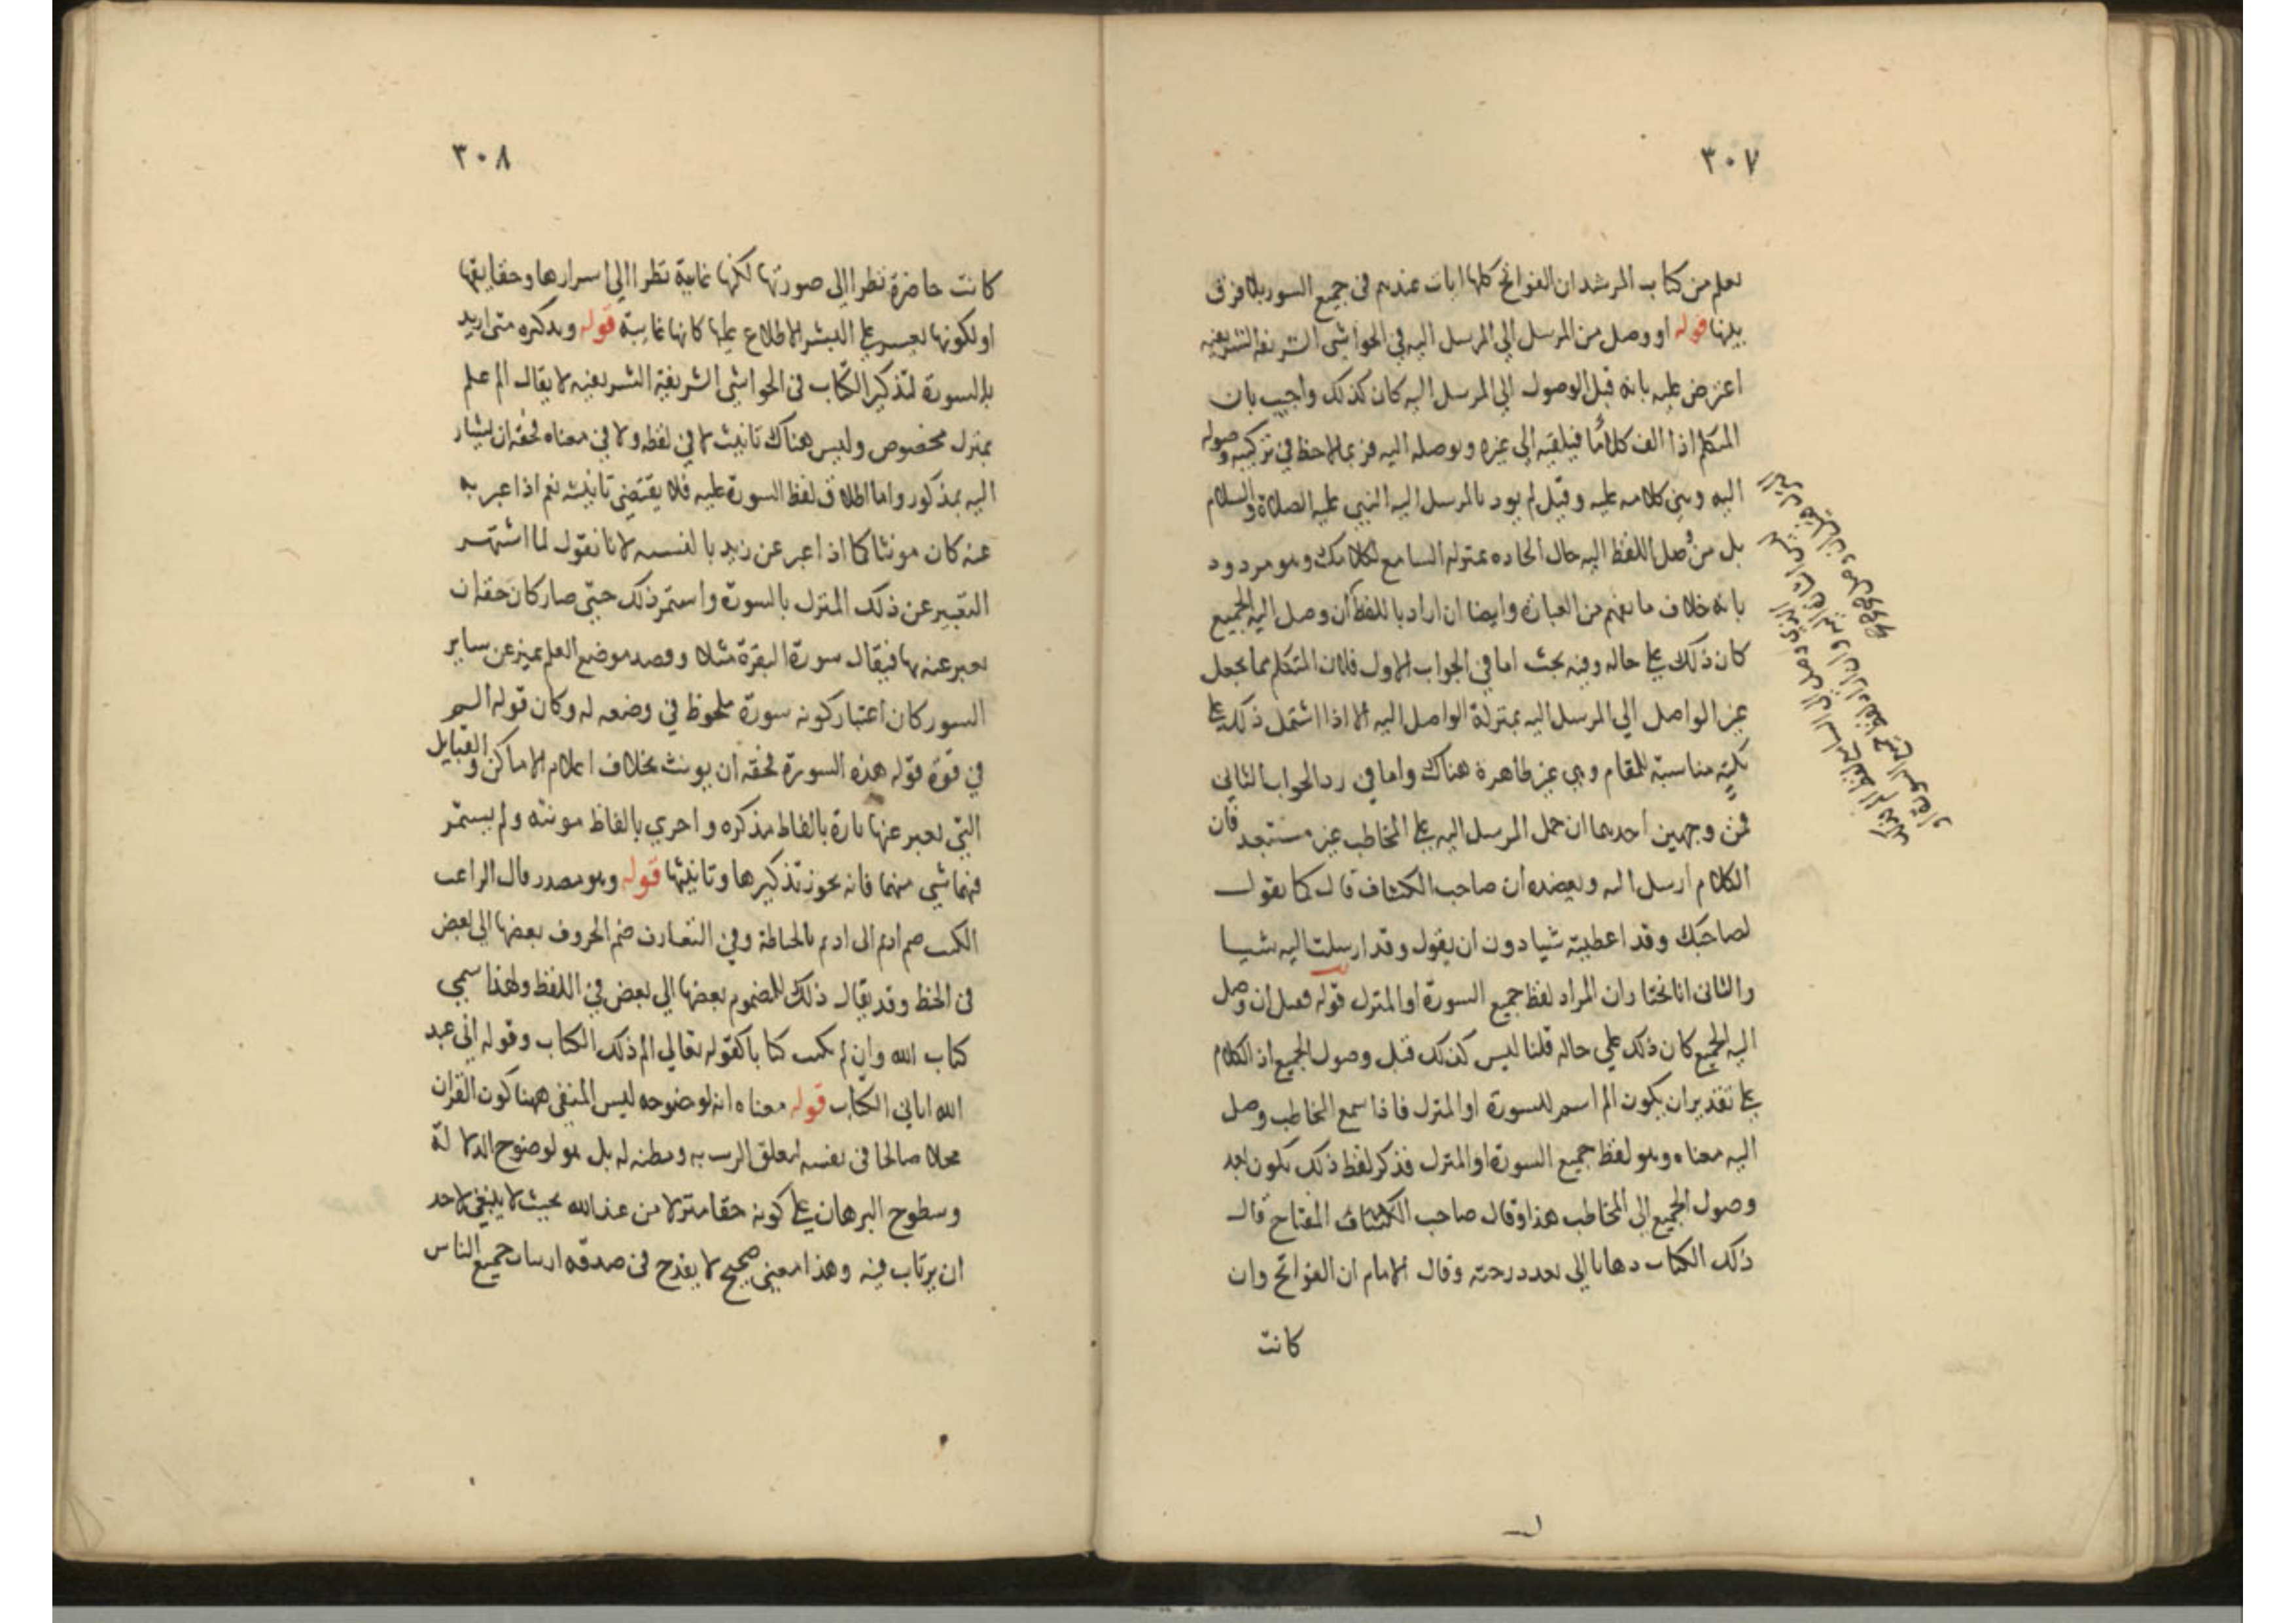 ٣٠٧
يعلم من كتاب المرشد ان الفواتح كلها ايات عندهم في جميع السور بلا فرق
بينها قوله او وصل من المرسل الي المرسل اليه في الحواشي الشريفة الشريفيه
اعترض عليه بانه قبل الوصول الي المرسل اليه كان كذلك واجيب بان
المتكلم اذا الف كلاما فيلقيه الي غيره ويوصله اليه فربما لاحظ في تركيبه وصوله
اليه وبني كلامه عليه وقيل لم يرد بالمرسل اليه النبي عليه الصلاة والسلام
بل من وصل اللفظ اليه حال اتحاده بمنزله السامع لكلامك وهو مردود
بانه خلاف ما يفهم من العبارة وايضا ان اراد باللفظ ان وصل اليه الجميع
كان ذلك علي حاله وفيه بحث اما في الجواب الاول فلان المتكلم بما يجعل
غير الواصل الي المرسل اليه بمنزلة الواصل اليه الا اذا اشتمل ذلك علي
نكتة مناسبة للمقام وهي غير ظاهرة هناك واما في رد الجواب الثاني
فمن وجهين احدهما ان حمل المرسل اليه علي المخاطب غير مستبعد فان
الكلام ارسل اليه ويعضده ان صاحب الكشاف قال كما تقول
لصاحبك وقد اعطيته شيا دون ان يقول وقد ارسلت اليه شيا
والثاني انا نختار ان المراد لفظ جميع السورة او المنزل قوله فعل ان وصل
اليه الجميع كان ذلك علي حاله قلنا ليس كذلك قبل وصول الجميع اذ الكلام
علي تقدير ان يكون الم اسم للسورة او المنزل فاذا سمع المخاطب وصل
اليه معناه وهو لفظ جميع السورة او المنزل فذكر لفظ ذلك يكون بعد
وصول الجميع الي المخاطب هذا وقال صاحب الكشاف المفتاح قال
ذلك الكتاب ذهابا الي بعد درجته وقال الامام ان الفواتح وان
كانت
٣٠٨
كانت حاضرة نظرا الي صورتها لكنها غايبة نظرا الي اسرارها وحقايقها
او لكونها يعسر علي البشر الاطلاع عليها كانها غايبة قوله وتذكيره متي اريد
بالسورة لتذكير الكتاب في الحواشي الشريفة الشريفيه لا يقال الم علم
بمنزل مخصوص وليس هناك تانيث لا في لفظه ولا في معناه فحقه ان يشار
اليه بمذكور واما اطلاق لفظ السورة عليه فلا يقتضي تانيثه نعم اذا عبر به
عنه كان مونثا كما اذا عبر عن زيد بالنسمه لانا نقول لما اشتهر
التعبير عن ذلك المنزل بالسورة واستمر ذلك حتي صار كان حقه ان
يعبر عنه بها فيقال سورة البقرة مثلا وقصد موضع العلم تميزه عن ساير
السور كان اعتبار كونه سورة ملحوظ في وضعه له وكان قوله الم
في قوة قوله هذه السورة فحقه ان يونث بخلاف اعلام الاماكن والقبايل
التي يعبر عنها تارة بالفاظ مذكره واخري بالفاظ مونثه ولم يستمر
فيها شي منهما فانه يجوز تذكيرها وتانيثها قوله وهو مصدر قال الراغب
الكتب ضم اديم الي اديم بالخياطة وفي التعارف ضم الحروف بعضها الي بعض
في الخط وقد يقال ذلك للمضموم بعضها الي بعض في اللفظ ولهذا سمي
كتاب الله وان لم يكتب كتابا كقوله تعالي الم ذلك الكتاب وقوله اني عبد
الله اتاني الكتاب قوله معناه انه لوضوحه ليس المنفي ههنا كون القران
محلا صالحا في نفسه لتعلق الريب به ومظنه له بل هو لوضوح الدلالة
وسطوح البرهان علي كونه حقا منزلا من عند الله بحيث لا ينبغي لاحد
ان يرتاب فيه وهذا معني صحيح لا يقدح في صدقه ارتياب جميع الناس